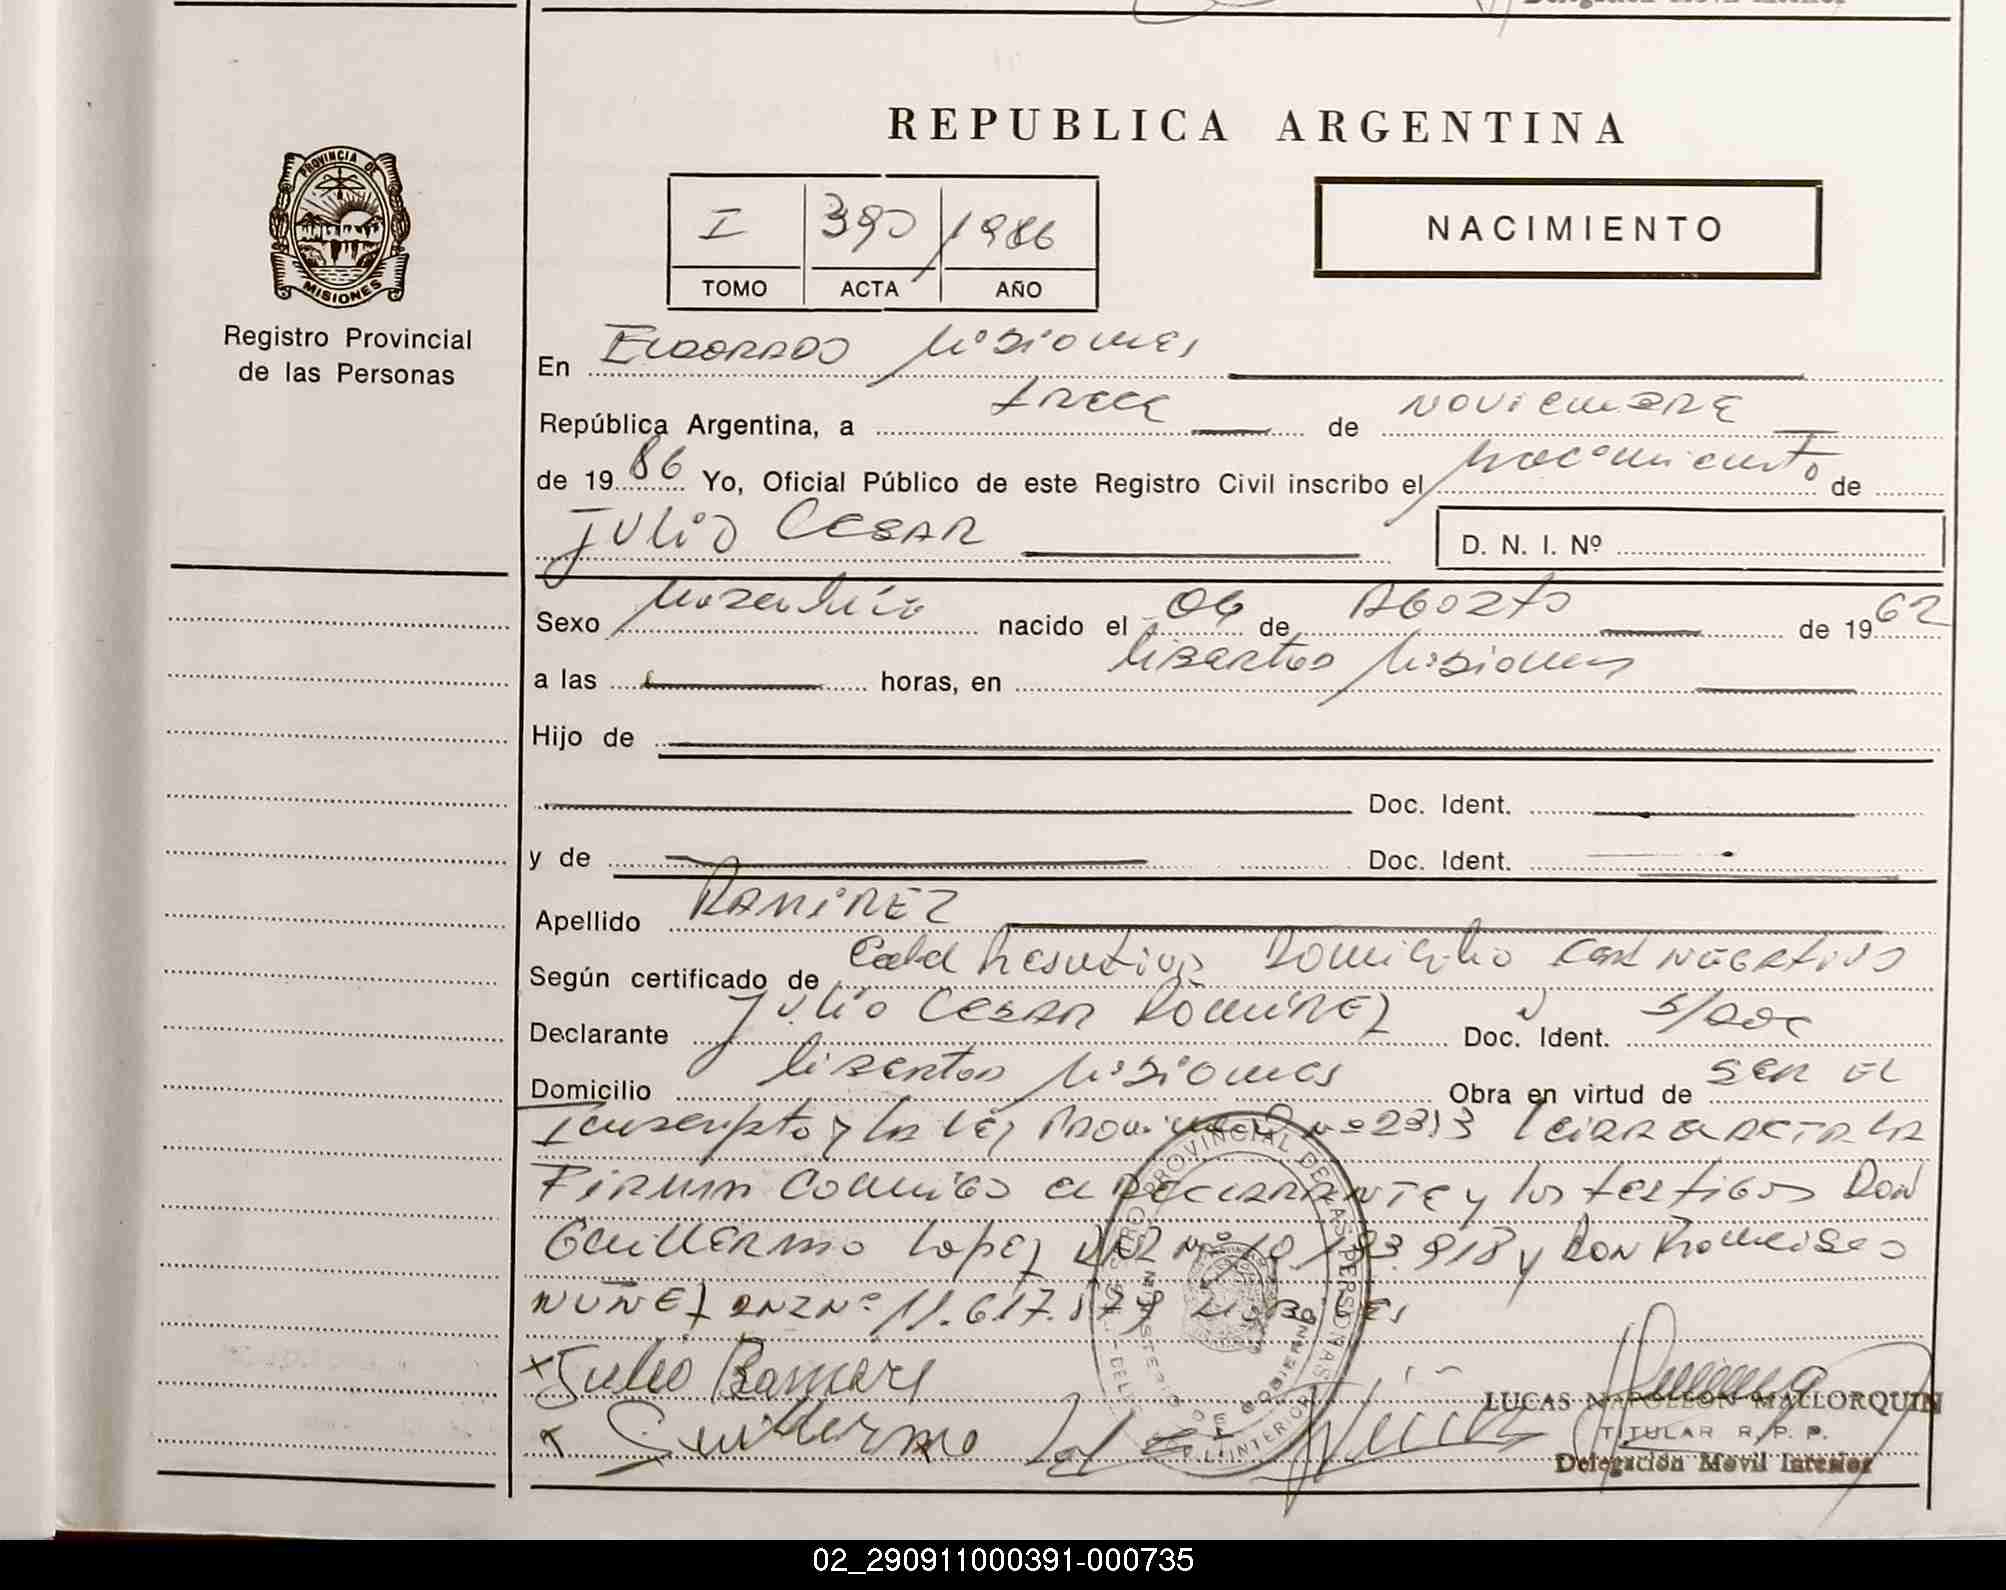 REPUBLICA ARGENTINA
PROVINCIA DE MISIONES
Registro Provincial de las Personas
I 390 1986
TOMO ACTA AÑO
NACIMIENTO
En Eldorado Misiones
República Argentina, a trece de noviembre
de 1986 Yo, Oficial Público de este Registro Civil inscribo el nacimiento de
Julio Cesar D. N. I. Nº
Sexo Masculino nacido el 06 de Agosto de 1962
a las horas, en Libertad Misiones
Hijo de
Doc. Ident.
y de Doc. Ident.
Apellido RAMIREZ
Según certificado de Domicilio negativo
Declarante Julio Cesar Ramirez Doc. Ident. s/doc
Domicilio Libertad Misiones Obra en virtud de ser el
Inscripto y la ley Provincial nº 2313 leida el acta la
Firman conmigo el Declarante y los testigos Don
Guillermo Lopez y Don
Nuñez DNI Nº 11.617.
x Julio
x Guillermo
LUCAS NAPOLEON MALLORQUIN
TITULAR R. P. P.
Delegación Movil Interior
02_290911000391-000735